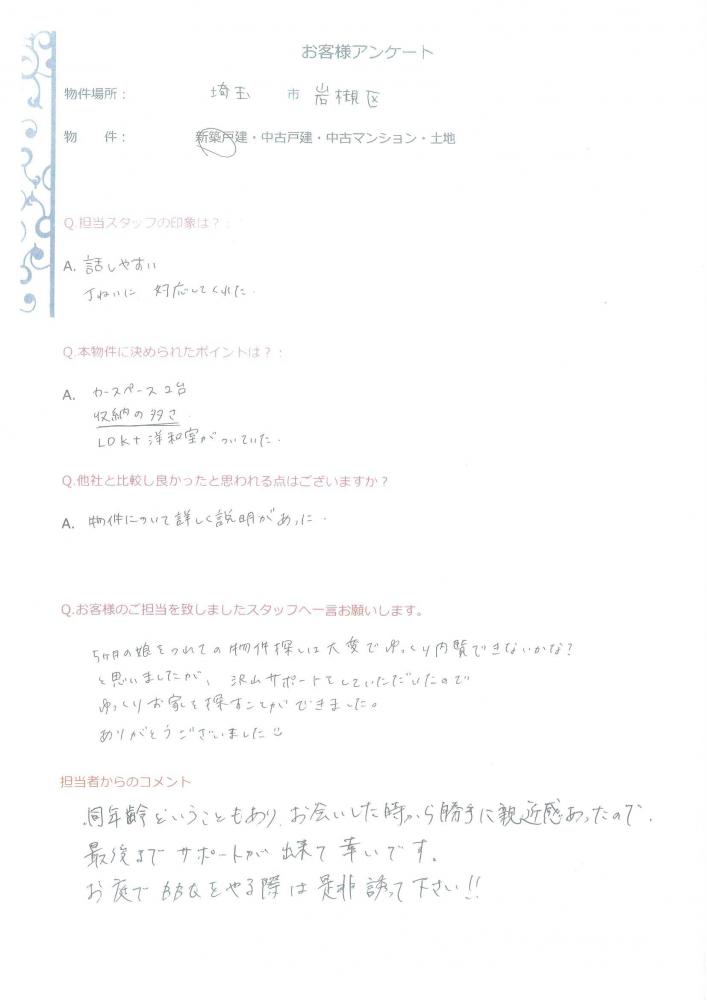 お客様アンケート
物件場所： 埼玉 市 岩槻区
物　　件： 新築戸建・中古戸建・中古マンション・土地
Q.担当スタッフの印象は？：
A. 話しやすい
丁ねいに 対応してくれた.
Q.本物件に決められたポイントは？：
A. カースペース2台
収納の多さ.
LDK+洋和室がついていた.
Q.他社と比較し良かったと思われる点はございますか？
A. 物件について詳しく説明があった.
Q.お客様のご担当を致しましたスタッフへ一言お願いします。
5ヶ月の娘をつれての物件探しは大変でゆっくり内覧できないかな?
と思いましたが、沢山サポートをしていただいたので
ゆっくりお家を探すことができました。
ありがとうございました
担当者からのコメント
同年齢ということもあり、お会いした時から勝手に親近感あったので、
最後までサポートが出来て幸いです。
お庭でBBQをやる際は是非誘って下さい!!